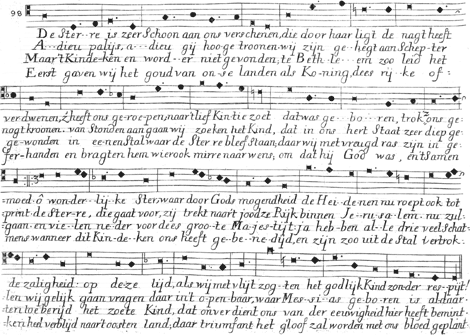 98
De Ster-re is zeer Schoon aan ons verschenen, die door haar ligt de nagt heeft
A...dieu palijs, a...dieu gij hooge troonen wij zijn ge-hegt aan Schepter
Maar t Kinde-ken en word-er niet gevonden, te Beth-le-em zoo leid het
Eerst gaven wij het goud van on-se landen als Ko-ning, dees rij-ke of-
verdwenen, z'heeft ons ge-roe-pen, naar t lief Kintie zoet dat was ge-bo-ren, trok ons ge-
nogt kroonen van Stonden aan gaan wij zoeken het Kind, dat in ons hert Staat zeer diep ge-
ge-wonden in eenen Stal waar de Ster re bleef Staan; daar wij met vreugd ras zijn in ge-
fer-handen en bragten hem wierook mirre naar wens; om dat hij God was, ent Samen
moed ô wonder-lij-ke Ster, waar door Gods mogendheid de Hei-de-nen nu roept ook tot
print de Ster-re, die gaat voor, zij trekt naar t joodze Rijk binnen Je-ru-sa-lem nu zul-
gaan en vie-len neder voor dees groo-te Ma-jes-tijt ja heb-ben al-le drie veel Schat-
mens wanneer dit Kin-de-ken ons heeft ge-be-ne-dijd, en zijn zoo uit de Stal vertrok-
de zaligheid op deze tijd, als wij met vlijt zog-ten het godlijk Kind zonder res-pijt!
len wij gelijk gaan vragen daar in't o-pen-baar, waar Mes-si-as ge-bo-ren is aldaar
ten toebereijd het zoete Kind, dat on verdient ons van der eeuwigheid hier heeft bemint
ken het verblijd naar t oosten land; daar triumfant het gloof zal worden met ons bloed geplant